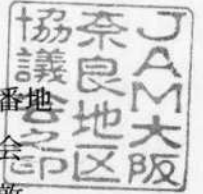 JAM大阪
奈良地区
協議会之印
番地
会